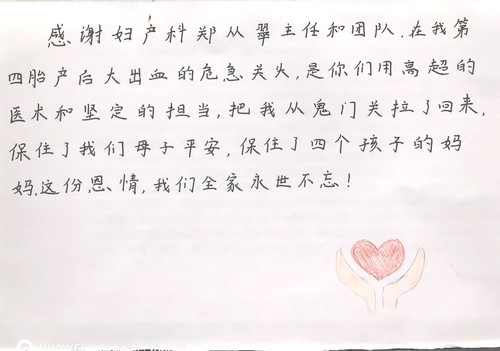 感谢妇产科郑从翠主任和团队,在我第
四胎产后大出血的危急关头,是你们用高超的
医术和坚定的担当,把我从鬼门关拉了回来,
保住了我们母子平安,保住了四个孩子的妈
妈.这份恩情,我们全家永世不忘!
HUAWEI